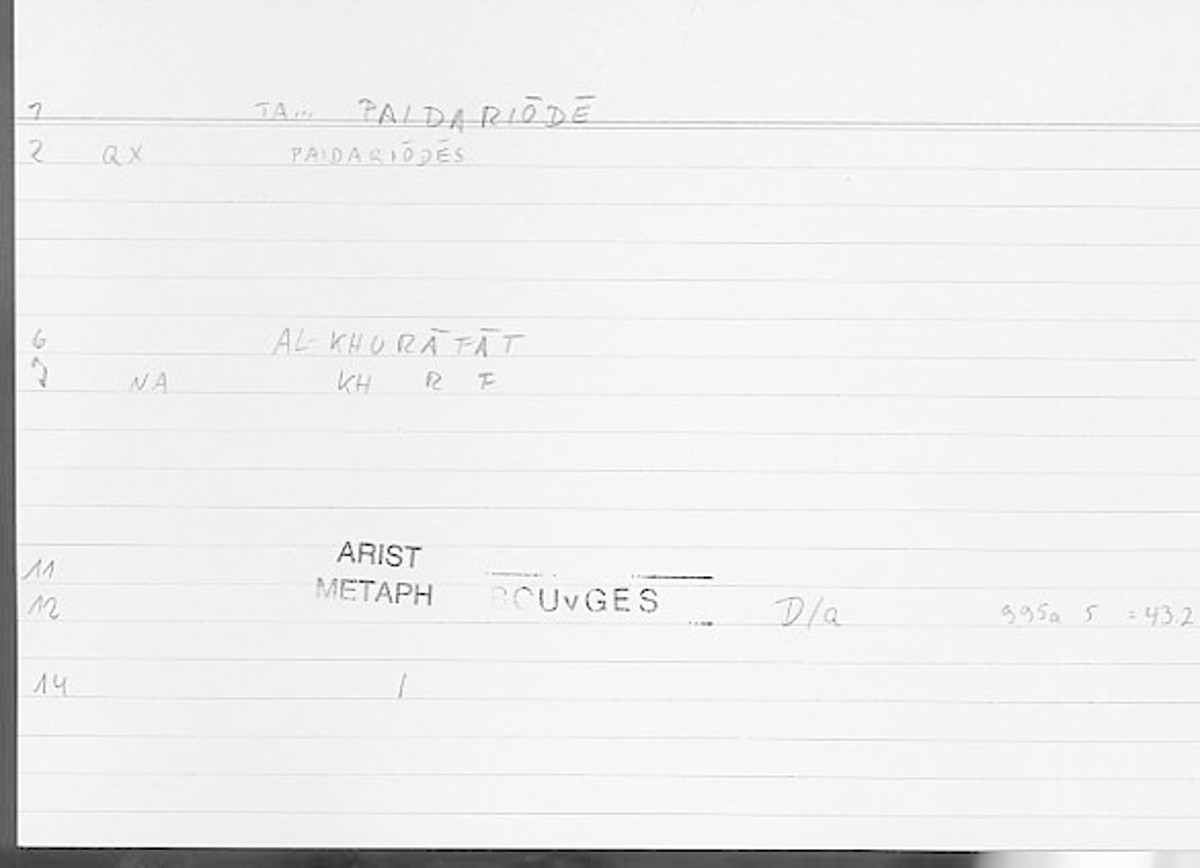 1 TA... PAIDARIŌDĒ
2 QX PAIDARIŌDĒS
6 AL-KHURĀFĀT
7 NA KH R F
11 ARIST
12 METAPH BOUvGES D/a 995a 5 = 43.2
14 1